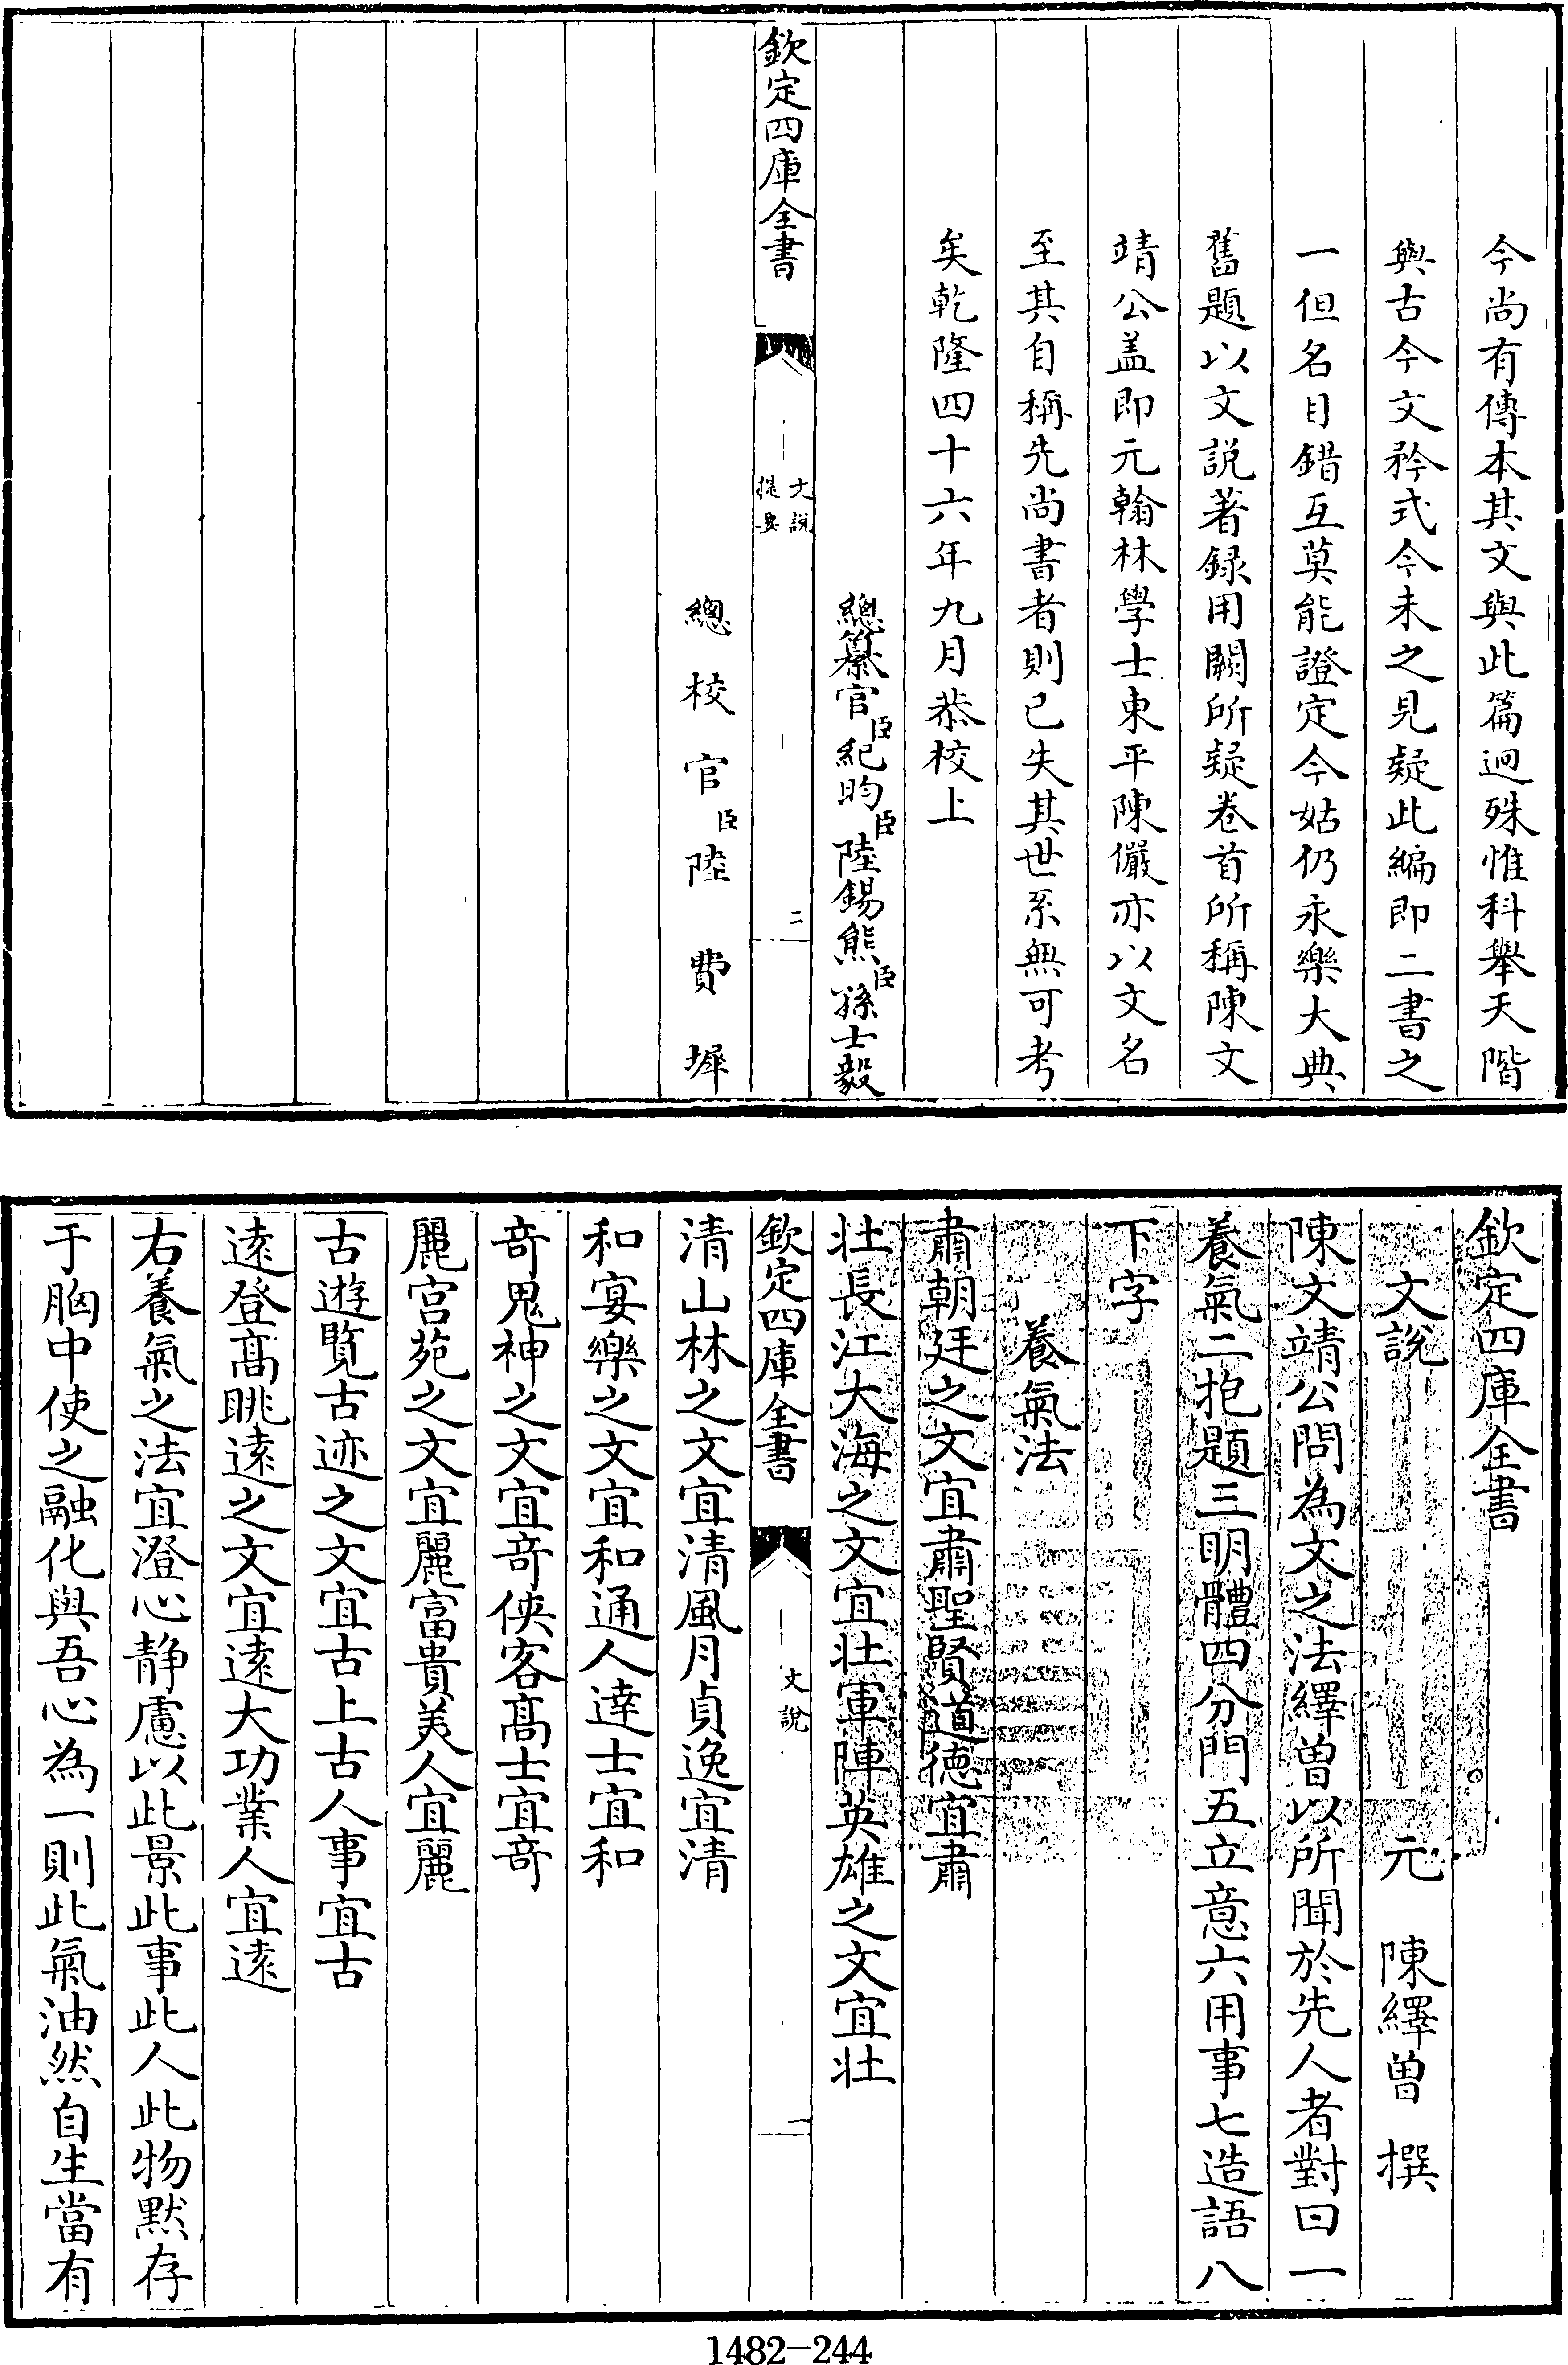 今尚有傳本其文與此篇迥殊惟科舉天階
與古今文矜式今未之見疑此編即二書之
一但名目錯互莫能證定今姑仍永樂大典
舊題以文説著録用闕所疑卷首所稱陳文
靖公盖即元翰林學士東平陳儼亦以文名
至其自稱先尚書者則已失其世系無可考
矣乾隆四十六年九月恭校上
總纂官臣紀昀臣陸錫熊臣孫士毅
欽定四庫全書
文說
提要
二
總校官臣陸費墀
欽定四庫全書
文說
元 陳繹曽 撰
陳文靖公問為文之法繹曽以所聞於先人者對曰一
養氣二抱題三明體四分門五立意六用事七造語八
下字
養氣法
肅朝廷之文宜肅聖賢道德宜肅
壯長江大海之文宜壯軍陣英雄之文宜壯
欽定四庫全書
文說
一
清山林之文宜清風月貞逸宜清
和宴樂之文宜和通人達士宜和
竒鬼神之文宜竒俠客髙士宜竒
麗宫苑之文宜麗富貴美人宜麗
古遊覽古迹之文宜古上古人事宜古
逺登髙眺逺之文宜逺大功業人宜逺
右養氣之法宜澄心静慮以此景此事此人此物黙存
于胸中使之融化與吾心為一則此氣油然自生當有
1482-244